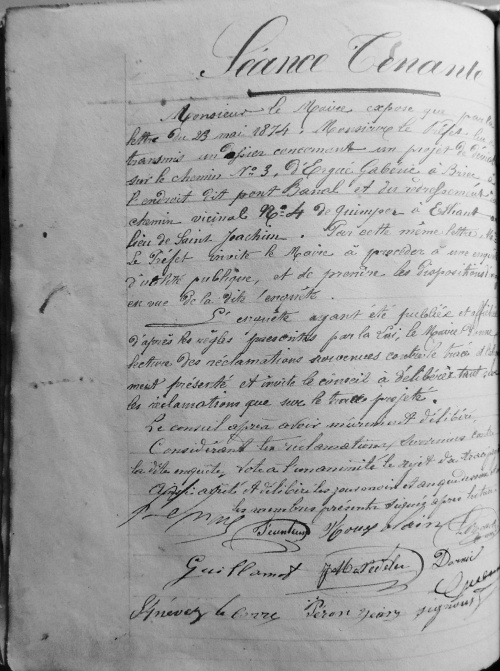 Séance Tenante
Monsieur le Maire expose que par la
lettre du 23 mai 1874, Monsieur le Préfet lui
transmis un dossier concernant un projet de
sur le chemin No 3, d'Ergué Gabéric à Briec
l'endroit dit pont Banal et du redressement
chemin vicinal No 4 de Quimper à Elliant
lieu de Saint Joachim. Par cette même lettre, M
Le Préfet invite le Maire à procéder à une enquê
d'utilité publique, et de prendre les dispositions
en vue de la dite enquête.
L'enquête ayant été publiée et affichée
d'après les règles prescrites par la Loi, le Maire donne
lecture des réclamations survenues contre le tracé
ment présenté et invite le conseil à délibérer tant sur
les réclamations que sur le tracé projeté.
Le conseil après avoir mûrement délibéré
Considérant les réclamations survenues contre
la dite enquête, vote à l'unanimité le rejet du tracé
Ainsi arrêté et délibéré les jour mois et an que dessus
les membres présents signé après lecture
Nouy Alain
Guillamot
le Corre Péron Jean